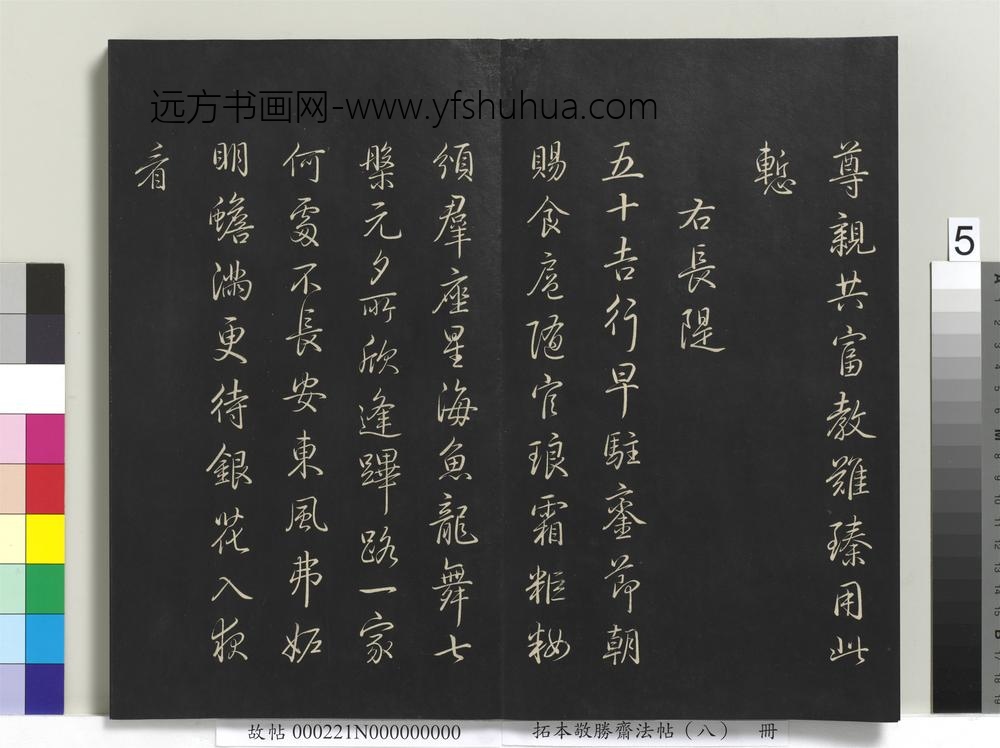 远方书画网-www.yfshuhua.com
尊親共富教難臻用此
慙
右長隄
五十吉行早駐鑾節朝
賜食扈隨官琅霜粔籹
頒羣座星海魚龍舞七
槃元夕所欣逢蹕路一家
何處不長安東風弗妬
明蟾滿更待銀花入夜
看
5
故帖 000221N000000000
拓本敬勝齋法帖（八） 冊